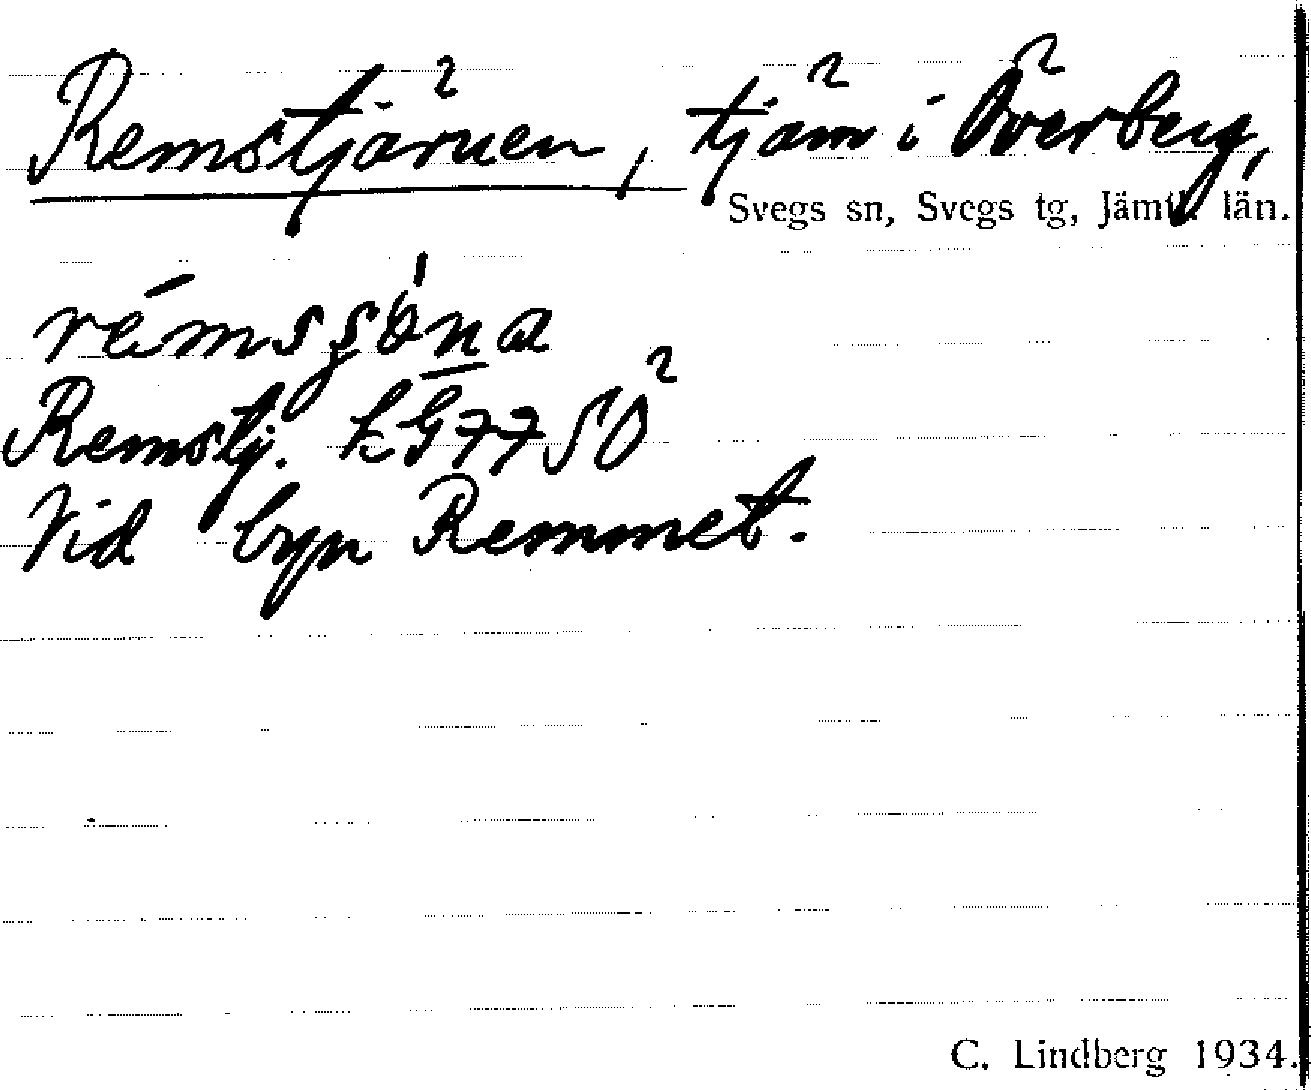 Remstjärnen, tjärn i Överberg,
Svegs sn, Svegs tg, Jämtl. län.
Remstj. kG77SÖ
Vid byn Remmet.
C. Lindberg 1934.